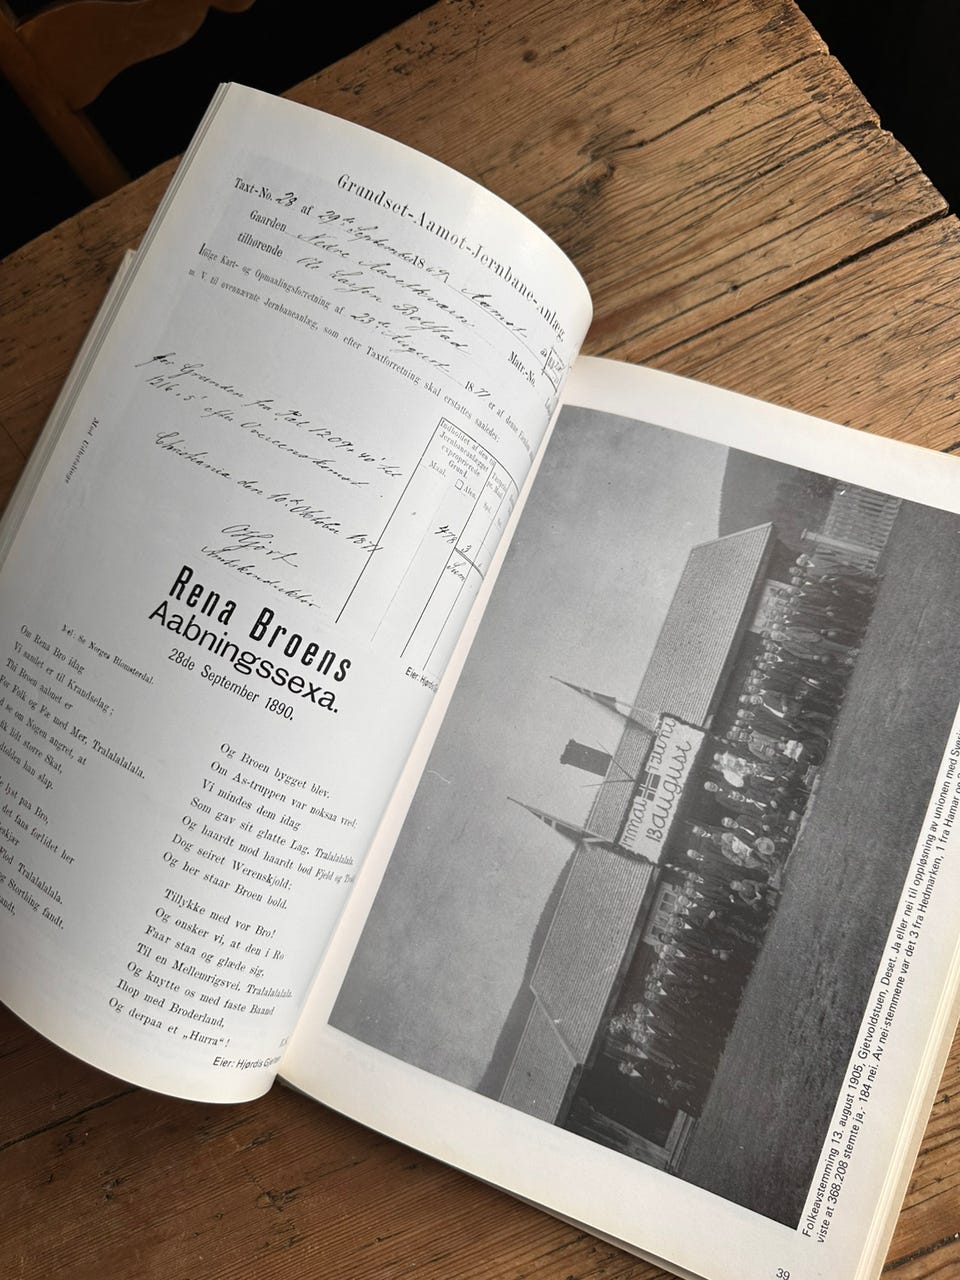 Grundset-Aamot-Jernbane-Anlæg.
Taxt-No. 23 af 29de September 1869. Aamot
Gaarden Nedre
tilhørende Ole Larsen Bolstad Matr.-No.
Ifølge Kart- og Opmaalingsforretning af 23de August 1877 er af denne
m. V. til ovennævnte Jernbaneanlæg, som efter Taxtforretning skal erstattes saaledes:
for Grunden
efter Overenskomst
Christiania den 10de Oktober 187
Indholdet af den til
Jernbaneanlægget
exproprierede
Grund.
Maal. □ Alen.
Spd.
478
Med Udbetaling
Eier: Hjørdis
Rena Broens
Aabningssexa.
28de September 1890.
Mel.: Se Norges Blomsterdal.
Om Rena Bro idag
Vi samlet er til Krandselag;
Thi Broen aabnet er
For Folk og Fæ med Mer, Tralalalalala.
se om Nogen angret, at
fik lidt større Skat,
han slap.
lyst paa Bro,
det fans forlidet her
Flod Tralalalala.
og Storthing fandt,
Og Broen bygget blev.
Om As-truppen var noksaa vred,
Vi mindes dem idag
Som gav sit glatte Lag, Tralalalalala.
Og haardt mod haardt bød Fjeld og
Dog seiret Werenskjold;
Og her staar Broen bold.
Tillykke med vor Bro!
Og ønsker vi, at den i Ro
Faar staa og glæde sig,
Til en Mellemrigsvei, Tralalalalala.
Og knytte os med faste Baand
Ihop med Broderland,
Og derpaa et „Hurra"!
Eier: Hjørdis
13 august
Folkeavstemming 13. august 1905, Gjetvoldstuen, Deset. Ja eller nei til oppløsning av unionen med
viste at 368.208 stemte ja,- 184 nei. Av nei-stemmene var det 3 fra Hedmarken, 1 fra Hamar og
39